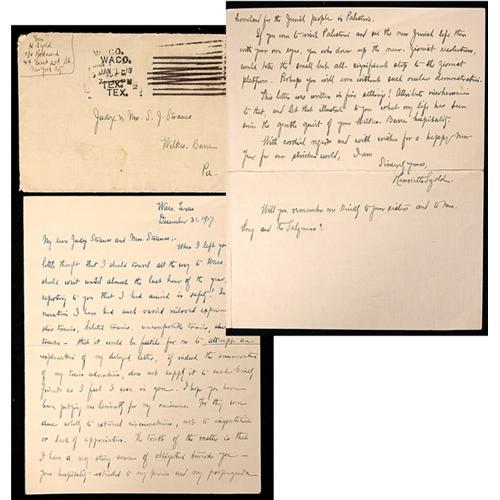 From
H. Szold
New York City
WACO.
WACO,
TEX.
TEX.
Judge & Mrs. S. J. Strauss
Wilkes-Barre
Pa.
Waco, Texas
December 31, 1917.
My dear Judge Strauss and Mrs. Strauss:-
When I left you I
little thought that I should travel all the way to Waco
should wait until almost the last hour of the year,
reporting to you that I had arrived in safety! In
I have had such varied railroad experiences
trains, belated trains, uncomfortable trains,
trains - that it would be futile for me to attempt an
explanation of my delayed letter, if indeed the enumeration
of my train adventures, does not supply it to such kindly
friends as I feel I won in you. I hope you have
been judging me leniently for my omissions. For they were
due wholly to external circumstances, not to ingratitude
or lack of appreciation. The truth of the matter is that
I have a very strong sense of obligation towards you -
your hospitality extended to my person and my propaganda
homeland for the Jewish people in Palestine.
If you were to visit Palestine and see the new Jewish life there
with your own eyes, you who drew up the near-Zionist resolutions
would take the small but all-significant step to the Zionist
platform. Perhaps you will even without such ocular demonstration.
This letter was written in five sittings! Attribute
to that, and let that illustrate to you what my life has been
since the gentle quiet of your Wilkes-Barre hospitality.
With cordial regards and with wishes for a happy New
Year for our stricken world, I am
Sincerely yours,
Henrietta Szold.
Will you remember me kindly to your sisters and to Mrs.
Long and the Salzmans?